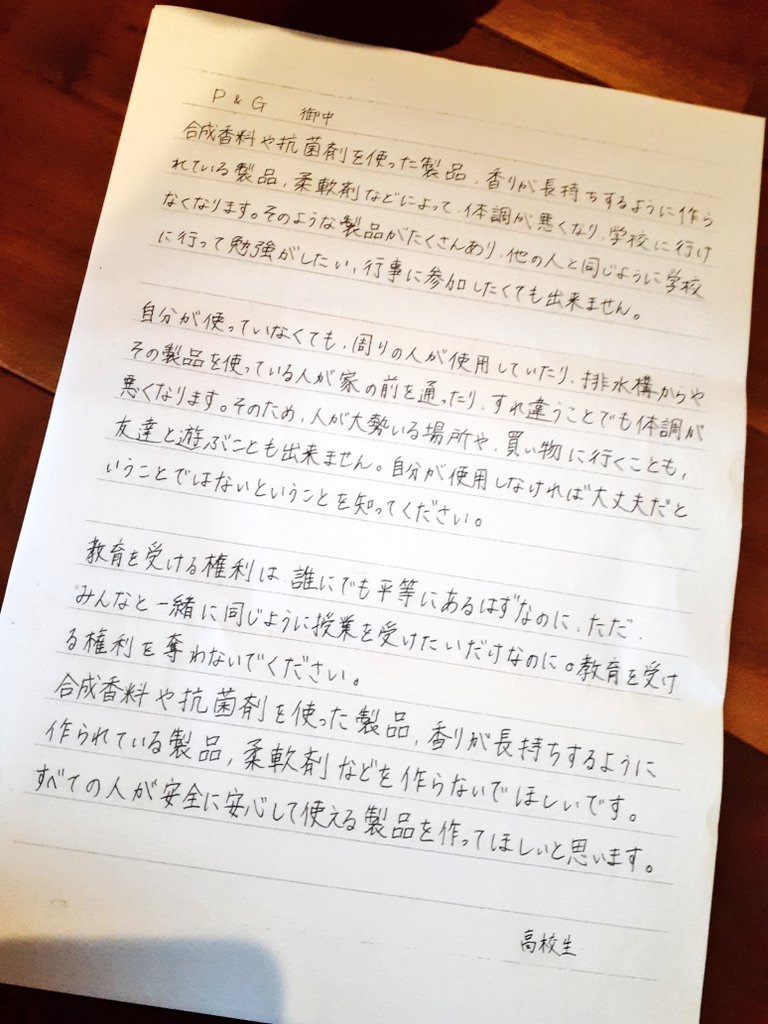 P & G 御中
合成香料や抗菌剤を使った製品、香りが長持ちするように作ら
れている製品、柔軟剤などによって、体調が悪くなり、学校に行け
なくなります。そのような製品がたくさんあり、他の人と同じように学校
に行って勉強がしたい、行事に参加したくても出来ません。
自分が使っていなくても、周りの人が使用していたり、排水構からや
その製品を使っている人が家の前を通ったり、すれ違うことでも体調が
悪くなります。そのため、人が大勢いる場所や、買い物に行くことも、
友達と遊ぶことも出来ません。自分が使用しなければ大丈夫だと
いうことではないということを知ってください。
教育を受ける権利は、誰にでも平等にあるはずなのに、ただ、
みんなと一緒に同じように授業を受けたいだけなのに。教育を受け
る権利を奪わないでください。
合成香料や抗菌剤を使った製品、香りが長持ちするように
作られている製品、柔軟剤などを作らないでほしいです。
すべての人が安全に安心して使える製品を作ってほしいと思います。
高校生